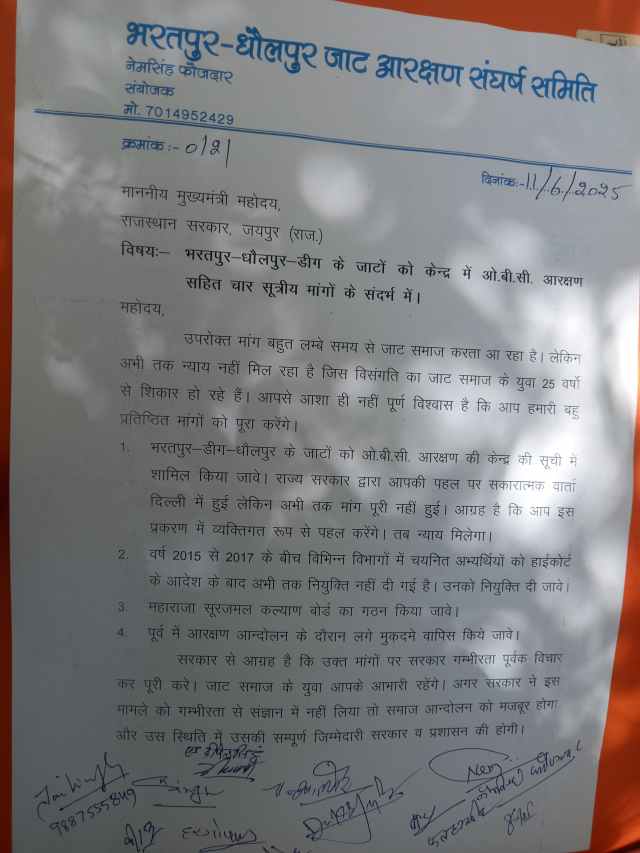 भरतपुर-धौलपुर जाट आरक्षण संघर्ष समिति
नेमसिंह फौजदार
संयोजक
मो. 7014952429
क्रमांक:- 0/21
दिनांक:- 11/6/2025
माननीय मुख्यमंत्री महोदय,
राजस्थान सरकार, जयपुर (राज.)
विषय:— भरतपुर—धौलपुर—डीग के जाटों को केन्द्र में ओ.बी.सी. आरक्षण
सहित चार सूत्रीय मांगों के संदर्भ में।
महोदय,
उपरोक्त मांग बहुत लम्बे समय से जाट समाज करता आ रहा है। लेकिन
अभी तक न्याय नहीं मिल रहा है जिस विसंगति का जाट समाज के युवा 25 वर्षो
से शिकार हो रहे हैं। आपसे आशा ही नहीं पूर्ण विश्वास है कि आप हमारी बहु
प्रतिष्ठित मांगों को पूरा करेंगे।
1. भरतपुर—डीग—धौलपुर के जाटों को ओ.बी.सी. आरक्षण की केन्द्र की सूची में
शामिल किया जावे। राज्य सरकार द्वारा आपकी पहल पर सकारात्मक वार्ता
दिल्ली में हुई लेकिन अभी तक मांग पूरी नहीं हुई। आग्रह है कि आप इस
प्रकरण में व्यक्तिगत रूप से पहल करेंगे। तब न्याय मिलेगा।
2. वर्ष 2015 से 2017 के बीच विभिन्न विभागों में चयनित अभ्यर्थियों को हाईकोर्ट
के आदेश के बाद अभी तक नियुक्ति नहीं दी गई है। उनको नियुक्ति दी जावे।
3. महाराजा सूरजमल कल्याण बोर्ड का गठन किया जावे।
4. पूर्व में आरक्षण आन्दोलन के दौरान लगे मुकदमे वापिस किये जावे।
सरकार से आग्रह है कि उक्त मांगों पर सरकार गम्भीरता पूर्वक विचार
कर पूरी करे। जाट समाज के युवा आपके आभारी रहेंगे। अगर सरकार ने इस
मामले को गम्भीरता से संज्ञान में नहीं लिया तो समाज आन्दोलन को मजबूर होगा
और उस स्थिति में उसकी सम्पूर्ण जिम्मेदारी सरकार व प्रशासन की होगी।
9887555849